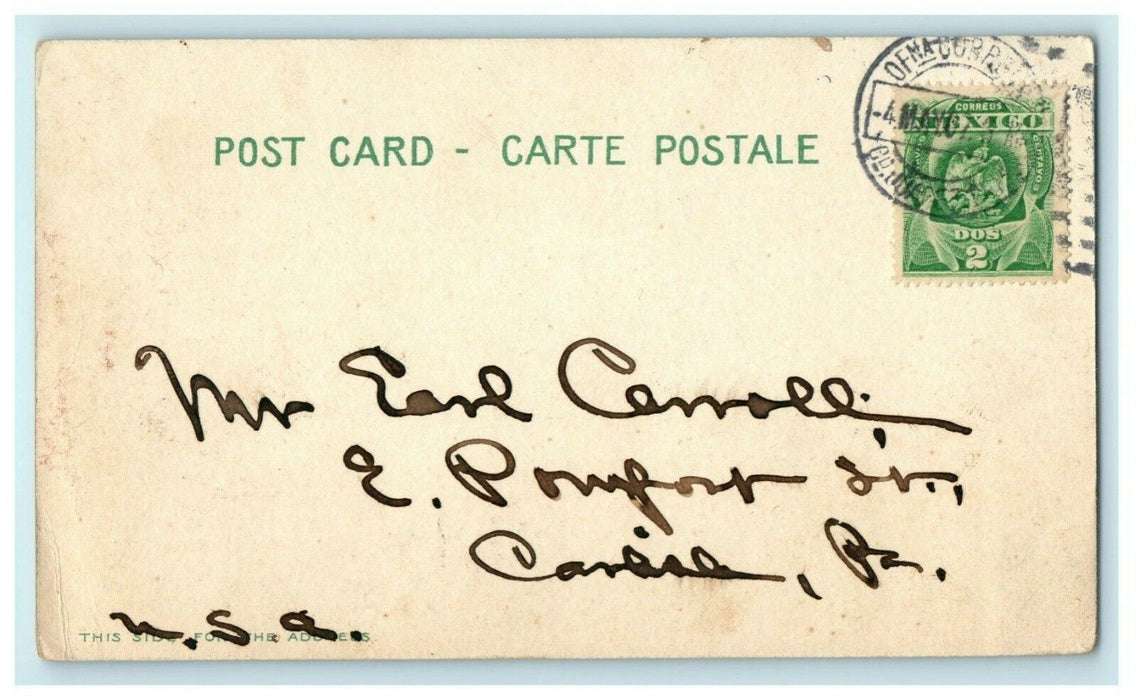 POST CARD - CARTE POSTALE
OFNA CORR
-4
CORREOS
MEXICO
CENTAVOS
DOS
2
Mr Earl Carroll,
E. Pomfort St.,
Carlisle, Pa.
U.S.A.
THIS SIDE FOR THE ADDRESS.